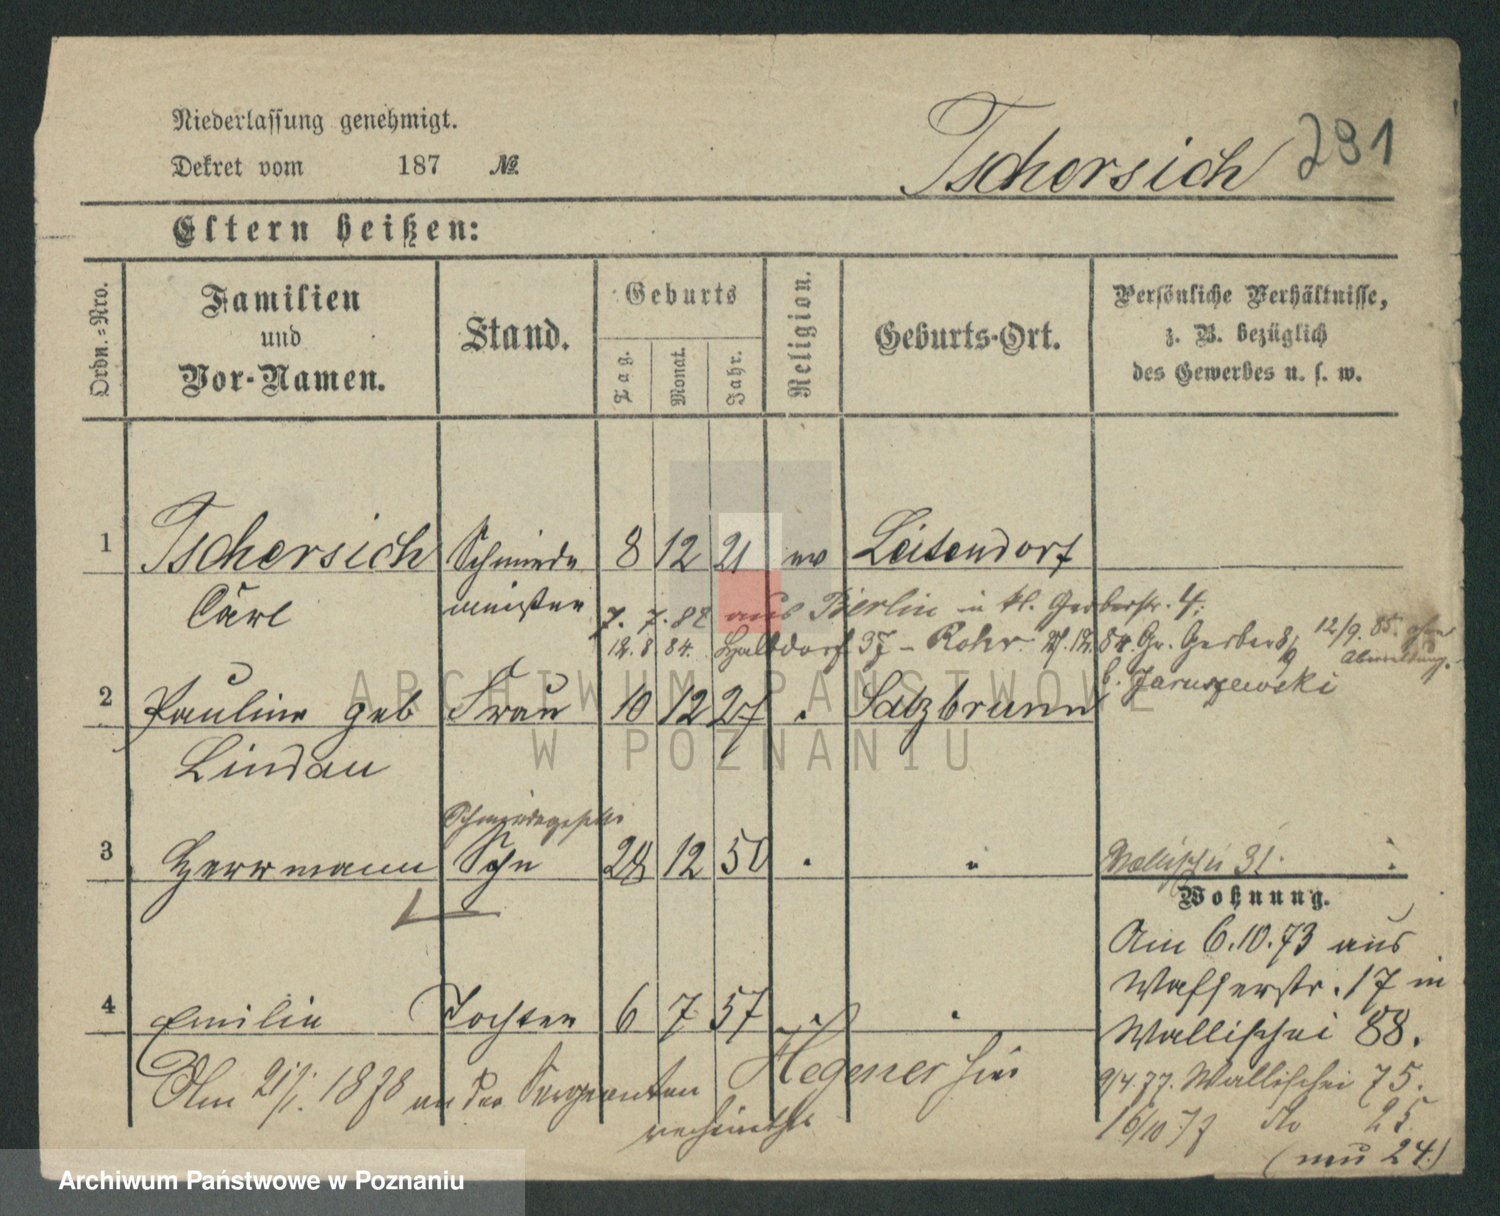 Niederlassung genehmigt.
Dekret vom 187 №
Tschersich 291
Eltern heißen:
Ordn.=Nro.
Familien
und
Vor-Namen.
Stand.
Geburts
Tag.
Monat.
Jahr.
Religion.
Geburts-Ort.
Persönliche Verhältnisse,
z. B. bezüglich
des Gewerbes u. s. w.
1 Tschersich Schmiede 8 12 21 ev Leisendorf
Carl meister
7. 7. 82 aus Berlin in kl. Gerberstr. 4;
12. 8 84. Halbdorf 37 - Rohr 84. Gr. Gerber 12/9. 85. ohne
Abmeldung.
b. Jaruszewski
2 Pauline geb Frau 10 12 27 Salzbrunn
Lindau
3 Herrmann Sohn 28 12 50 "
Wallischei 31.
Wohnung.
Am 6.10.73 aus
Wasserstr. 17 in
Wallischei 88.
9/4.77. Wallischei 75.
16/10 77 do 25.
(neu 24.)
4 Emilie Tochter 6 7 57 "
Am 21/1. 1878 an der Sergeanten Hegener hier
verheirathet
ARCHIWUM PAŃSTWOWE
W POZNANIU
Archiwum Państwowe w Poznaniu